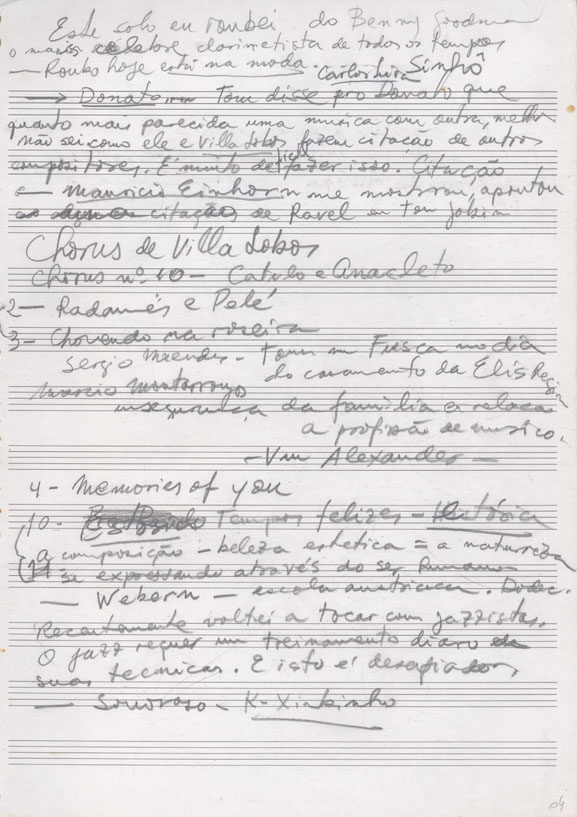 Este solo eu roubei do Benny Goodman
o mais celebre clarinetista de todos os tempos
— Roubo hoje está na moda. Carlos Lira Sinhô
→ Donato Tom disse pro Donato que
quanto mais parecida uma musica com outra, melhor
não sei como ele e Villa Lobos fazem citação de outros
compositores. É muito dificil fazer isso. Citação
— Mauricio Einhorn me mostrou, apontou
citação de Ravel em Tom Jobim
Chorus de Villa Lobos
Chorus nº 10 — Catulo e Anacleto
2 — Radamés e Pelé
3 — Chovendo na roseira
Sergio Mendes — Fusca no dia
do casamento da Elis Regina
Marcio Montarroyos
insegurança da familia a relação
a profissão de musico.
— Van Alexander —
4 — Memories of you
10 - Tempos felizes — História
a composição — beleza estética = a natureza
se expressando através do ser humano
— Webern — escola austriaca. Dodec.
Recentemente voltei a tocar com jazzistas.
O jazz requer um treinamento diaro de
suas tecnicas. E isto é desafiador
— Sonoroso — K-Ximbinho
04